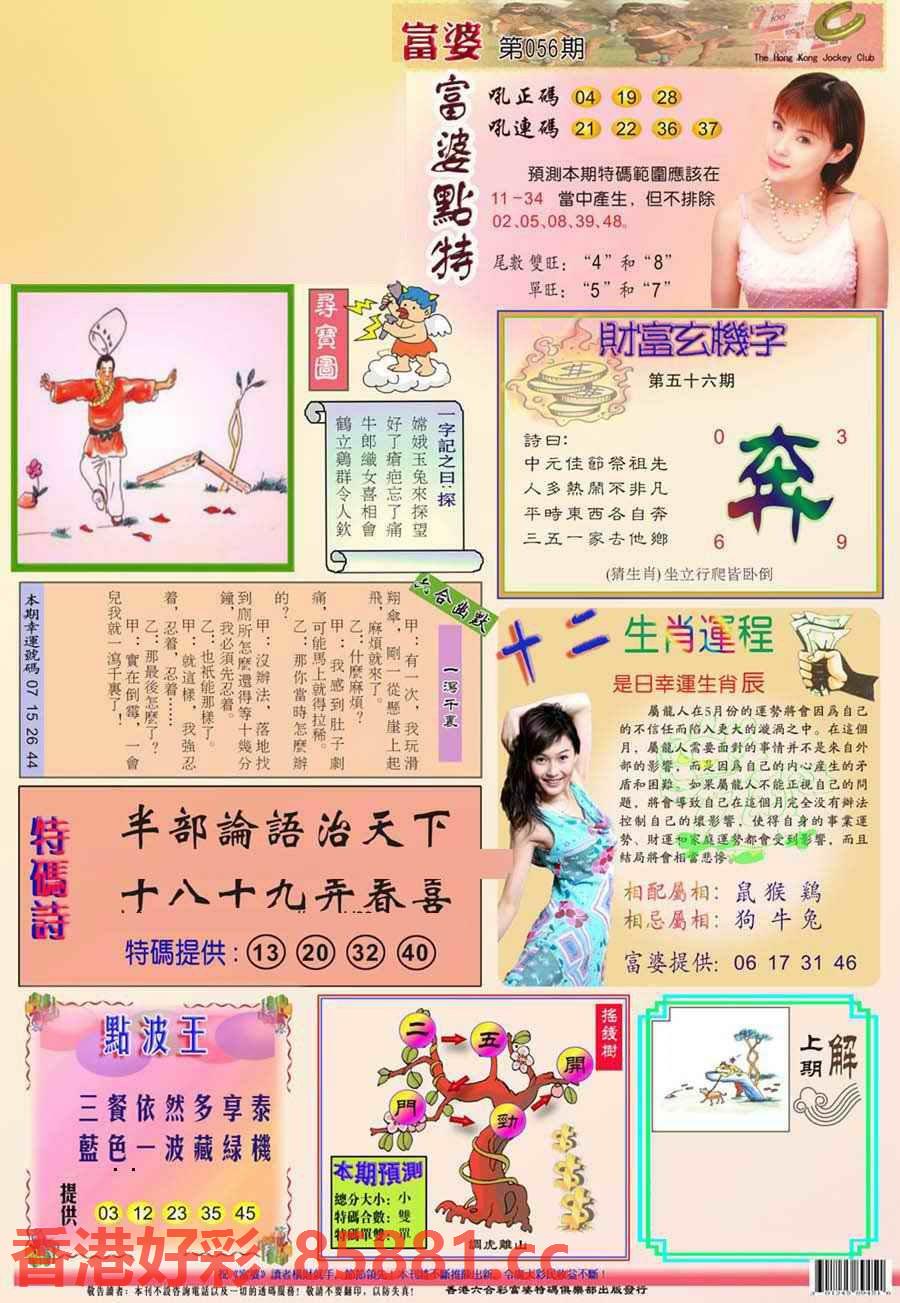 富婆 第056期
The Hong Kong Jockey Club
富婆點特
吼正碼 04 19 28
吼連碼 21 22 36 37
預測本期特碼範圍應該在
11-34 當中產生，但不排除
02、05、08、39、48。
尾數雙旺：“4”和“8”
單旺：“5”和“7”
尋寶圖
一字記之曰：探
嫦娥玉兔來探望
好了瘡疤忘了痛
牛郎織女喜相會
鶴立鷄群令人欽
財富玄機字
第五十六期
詩曰：
中元佳節祭祖先
人多熱鬧不非凡
平時東西各自奔
三五一家去他鄉
0 3
奔
6 9
(猜生肖)坐立行爬皆卧倒
六合幽默
一瀉千裏
甲：有一次，我玩滑
翔傘，剛一從懸崖上起
飛，麻煩就來了。
乙：什麼麻煩？
甲：我感到肚子劇
痛，可能馬上就得拉稀。
乙：那你當時怎麼辦
的？
甲：沒辦法，落地找
到厠所怎麼還得等十幾分
鐘，我必須先忍着。
乙：也衹能那樣了。
甲：就這樣，我強忍
着，忍着，忍着……
乙：那最後怎麼了？
甲：實在倒霉，一會
兒我就一瀉千裏了！
本期幸運號碼 07 15 26 44
十二生肖運程
是日幸運生肖辰
屬龍人在5月份的運勢將會因爲自己
的不信任而陷入更大的漩渦之中。在這個
月，屬龍人需要面對的事情并不是來自外
部的影響，而是因爲自己的内心產生的矛
盾和困難，如果屬龍人不能正視自己的問
題，將會導致自己在這個月完全没有辦法
控制自己的壞影響，使得自身的事業運
勢、財運和家庭運勢都會受到影響，而且
結局將會相當悲慘。
相配屬相：鼠猴鷄
相忌屬相：狗牛兔
富婆提供：06 17 31 46
特碼詩
半部論語治天下
十八十九弄春喜
特碼提供：13 20 32 40
點波王
三餐依然多享泰
藍色一波藏緑機
提供 03 12 23 35 45
搖錢樹
二 五 開
門 勁
本期預測
總分大小：小
特碼合數：雙
特碼單雙：單
調虎離山
上期解
香港好彩 85881.cc
讀者橫財就手，節節領先！本刊將不斷推陳出新，令廣大彩民收益不斷！
敬告讀者：本刊不設咨詢電話以及一切的透碼服務！敬請不要翻印，以防失真！
香港六合彩富婆特碼俱樂部出版發行